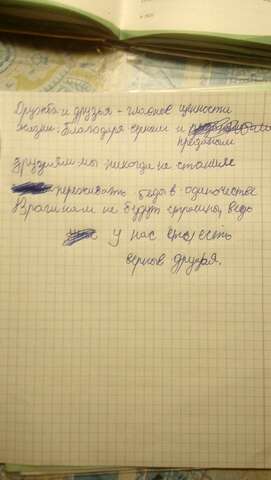 Дружба и друзья - главное ценности
жизни. Благодаря верным и
преданым
друзьям мы никогда не станем
переживать беды в одиночестве
Враги нам не будут страшны, ведь
у нас есть
верные друзья.